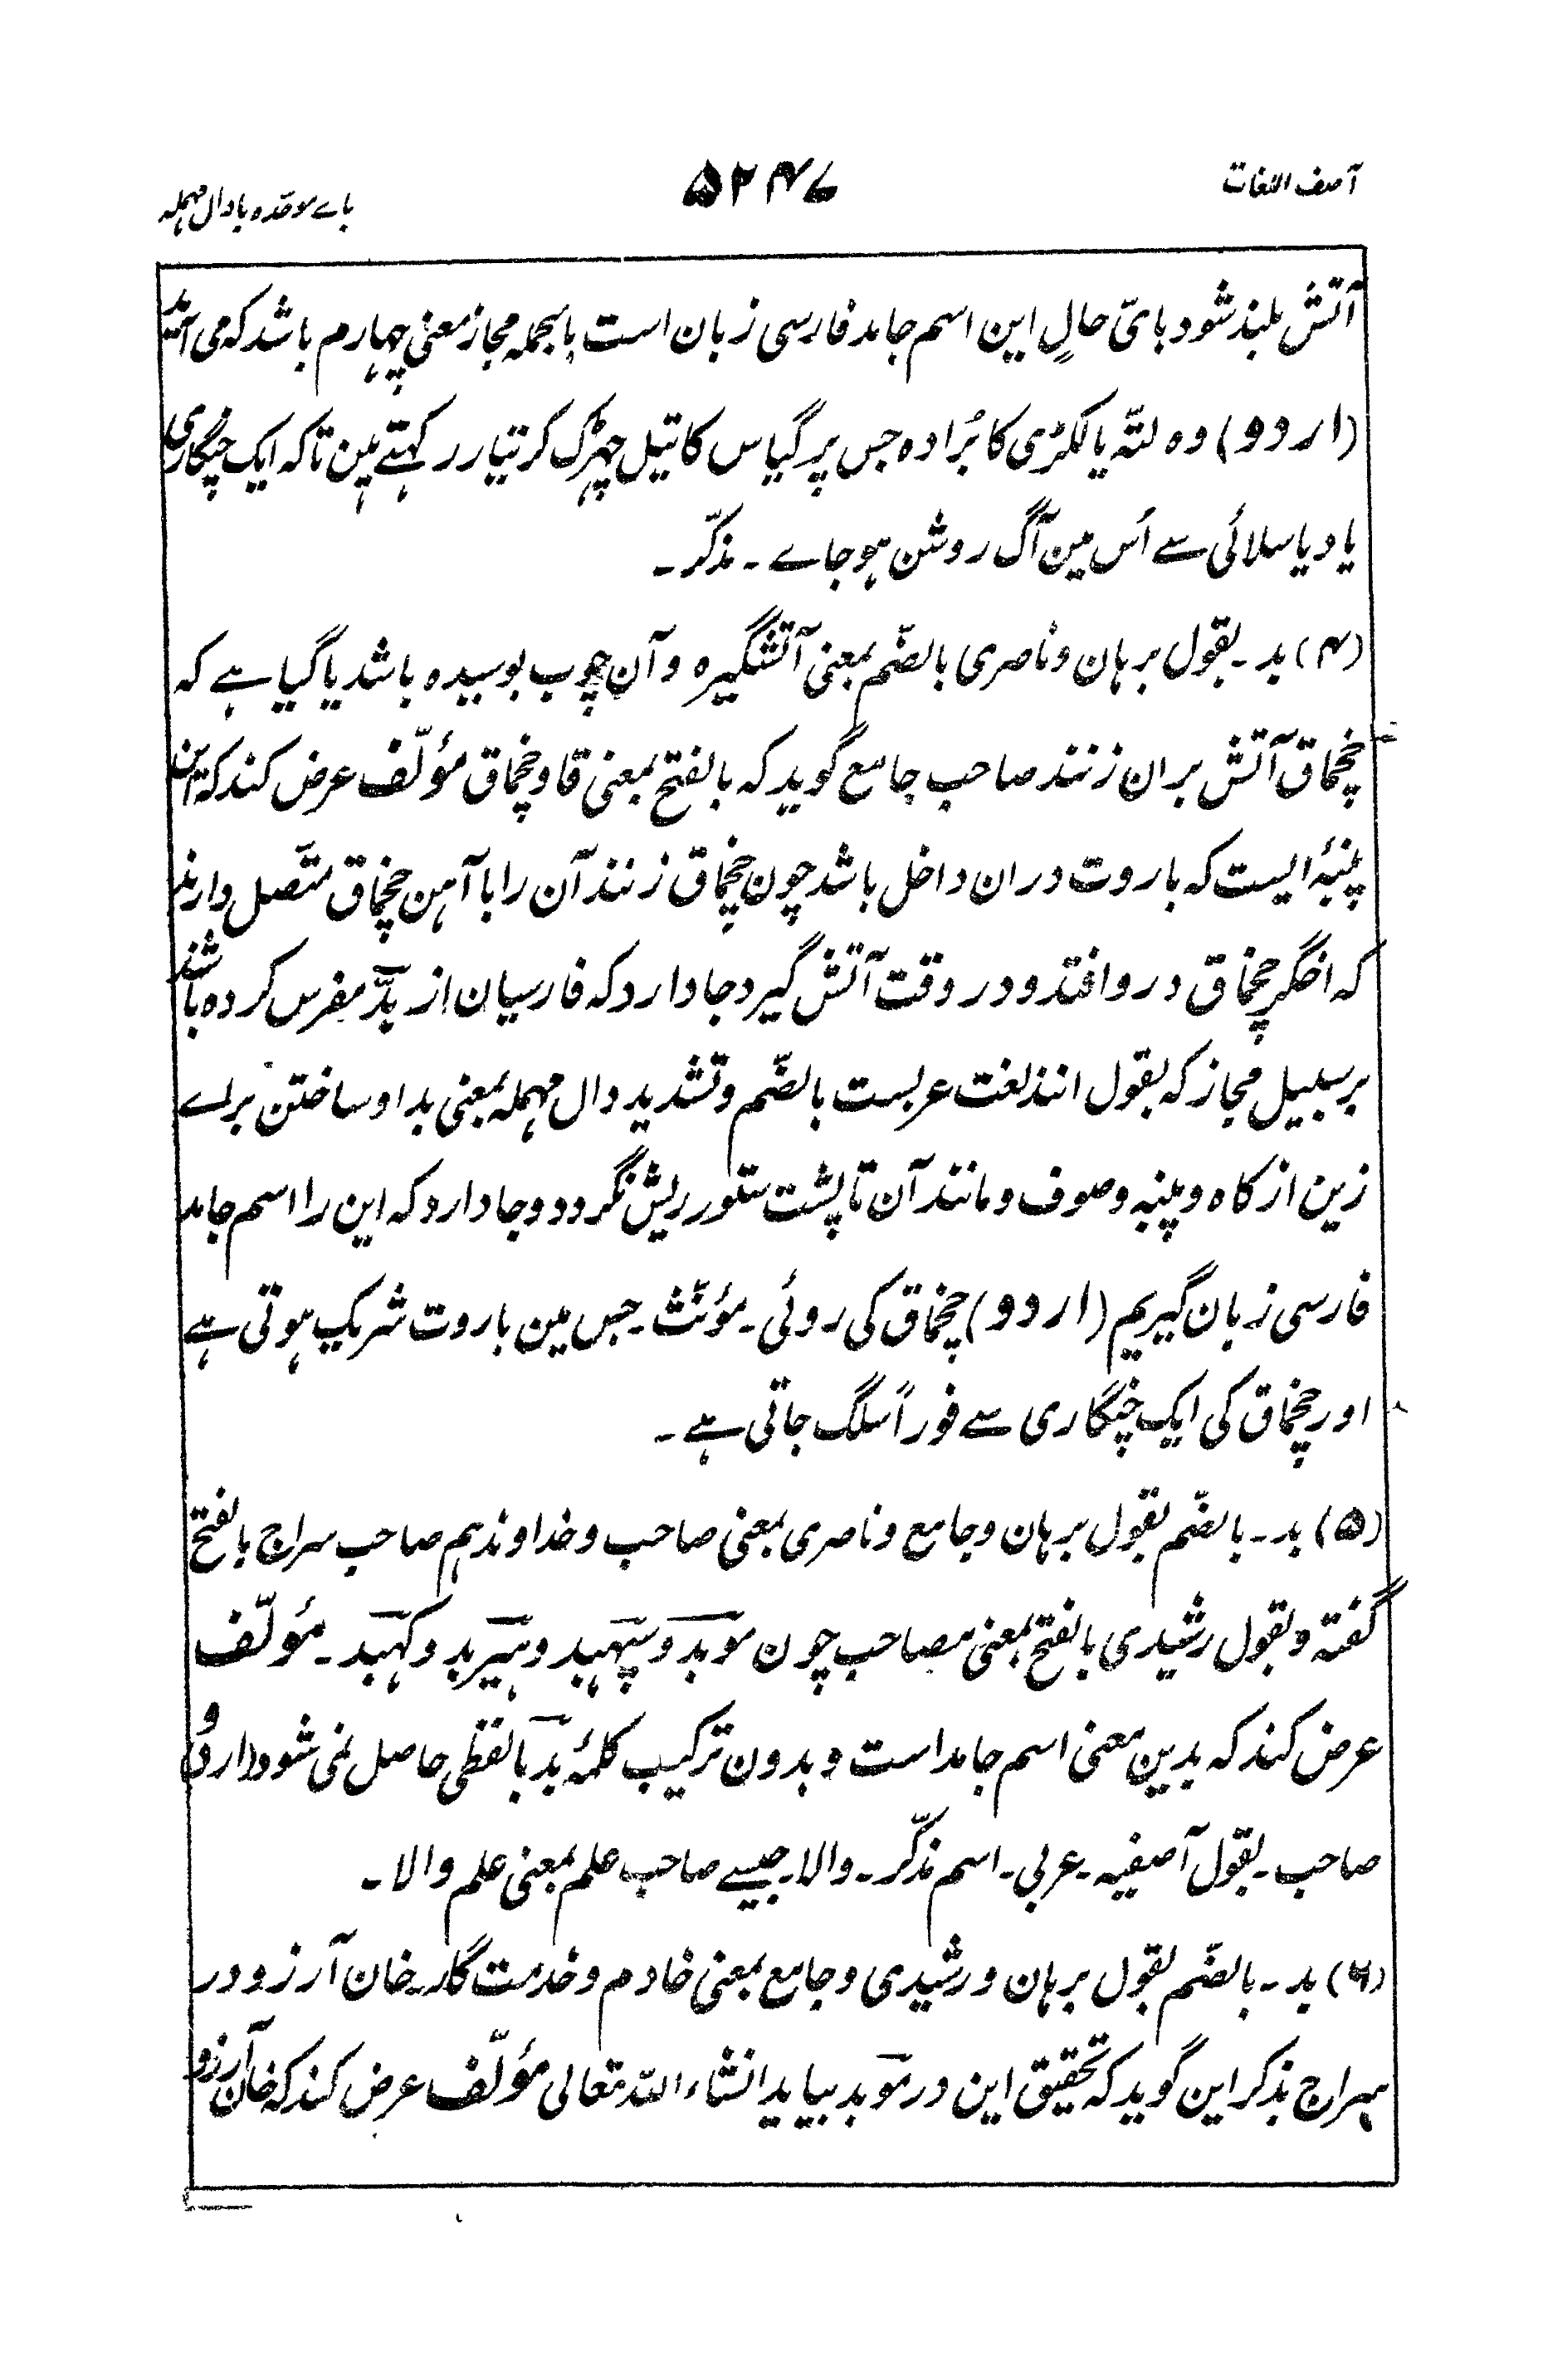 آصف اللغات
۵۲۴۷
باے موحّدہ بادال مہملہ
آتش بلند شود باىّ حالٍ این اسم جامد فارسی زبان است بالجملہ مجاز معنی چہارم باشد کہ می آید
(اردو) وہ لتّہ یا لکڑی کا بُرادہ جس پر گیاس کا تیل چہڑک کر تیار رکہتے ہین تاکہ ایک چنگاری
یا دیاسلائی سے اُس مین آگ روشن ہو جاے ۔ مذکّر ۔
(۴) بد ۔ بقول برہان و ناصری بالضّم بمعنی آتشگیرہ و آن چوب بوسیدہ باشد یا گیا ہے کہ
چخماق آتش بران زنند صاحب جامع گوید کہ بالفتح بمعنی قاو چخماق مؤلّف عرض کند کہ این
پنبۂ ایست کہ باروت دران داخل باشد چون چخماق زنند آن را با آہن چخماق متّصل دارند
کہ اخگر چخماق درو افتد و در وقت آتش گیرد جا دارد کہ فارسیان از بدّ مفرس کردہ باشند
بر سبیل مجاز کہ بقول انند لغت عربست بالضّم و تشدید دال مہملہ بمعنی بداو ساختن براے
زین از کاہ و پنبہ و صوف و مانند آن تا پشت ستور ریش نگردد و جا دارد کہ این را اسم جامد
فارسی زبان گیریم (اردو) چخماق کی روئی ۔ مؤنّث ۔ جس مین باروت شریک ہوتی ہے
اور چخماق کی ایک چنگاری سے فوراً سلگ جاتی ہے ۔
(۵) بد ۔ بالضّم بقول برہان و جامع و ناصری بمعنی صاحب و خداوند ہم صاحب سراج بالفتح
گفتہ و بقول رشیدی بالفتح بمعنی مصاحب چون موبد و سپہبد و ہیربد و کہبد ۔ مؤلّف
عرض کند کہ بدین معنی اسم جامد است و بدون ترکیب کلمۂ بد بالفظی حاصل نمی شود (اردو)
صاحب ۔ بقول آصفیہ ۔ عربی ۔ اسم مذکّر ۔ والا ۔ جیسے صاحب علم بمعنی علم والا ۔
(۶) بد ۔ بالضّم بقول برہان و رشیدی و جامع بمعنی خادم و خدمت گار ۔ خان آرزو در
سراج بذکر این گوید کہ تحقیق این در موبد بیاید انشاء اللّہ تعالی مؤلّف عرض کند کہ خان آرزو